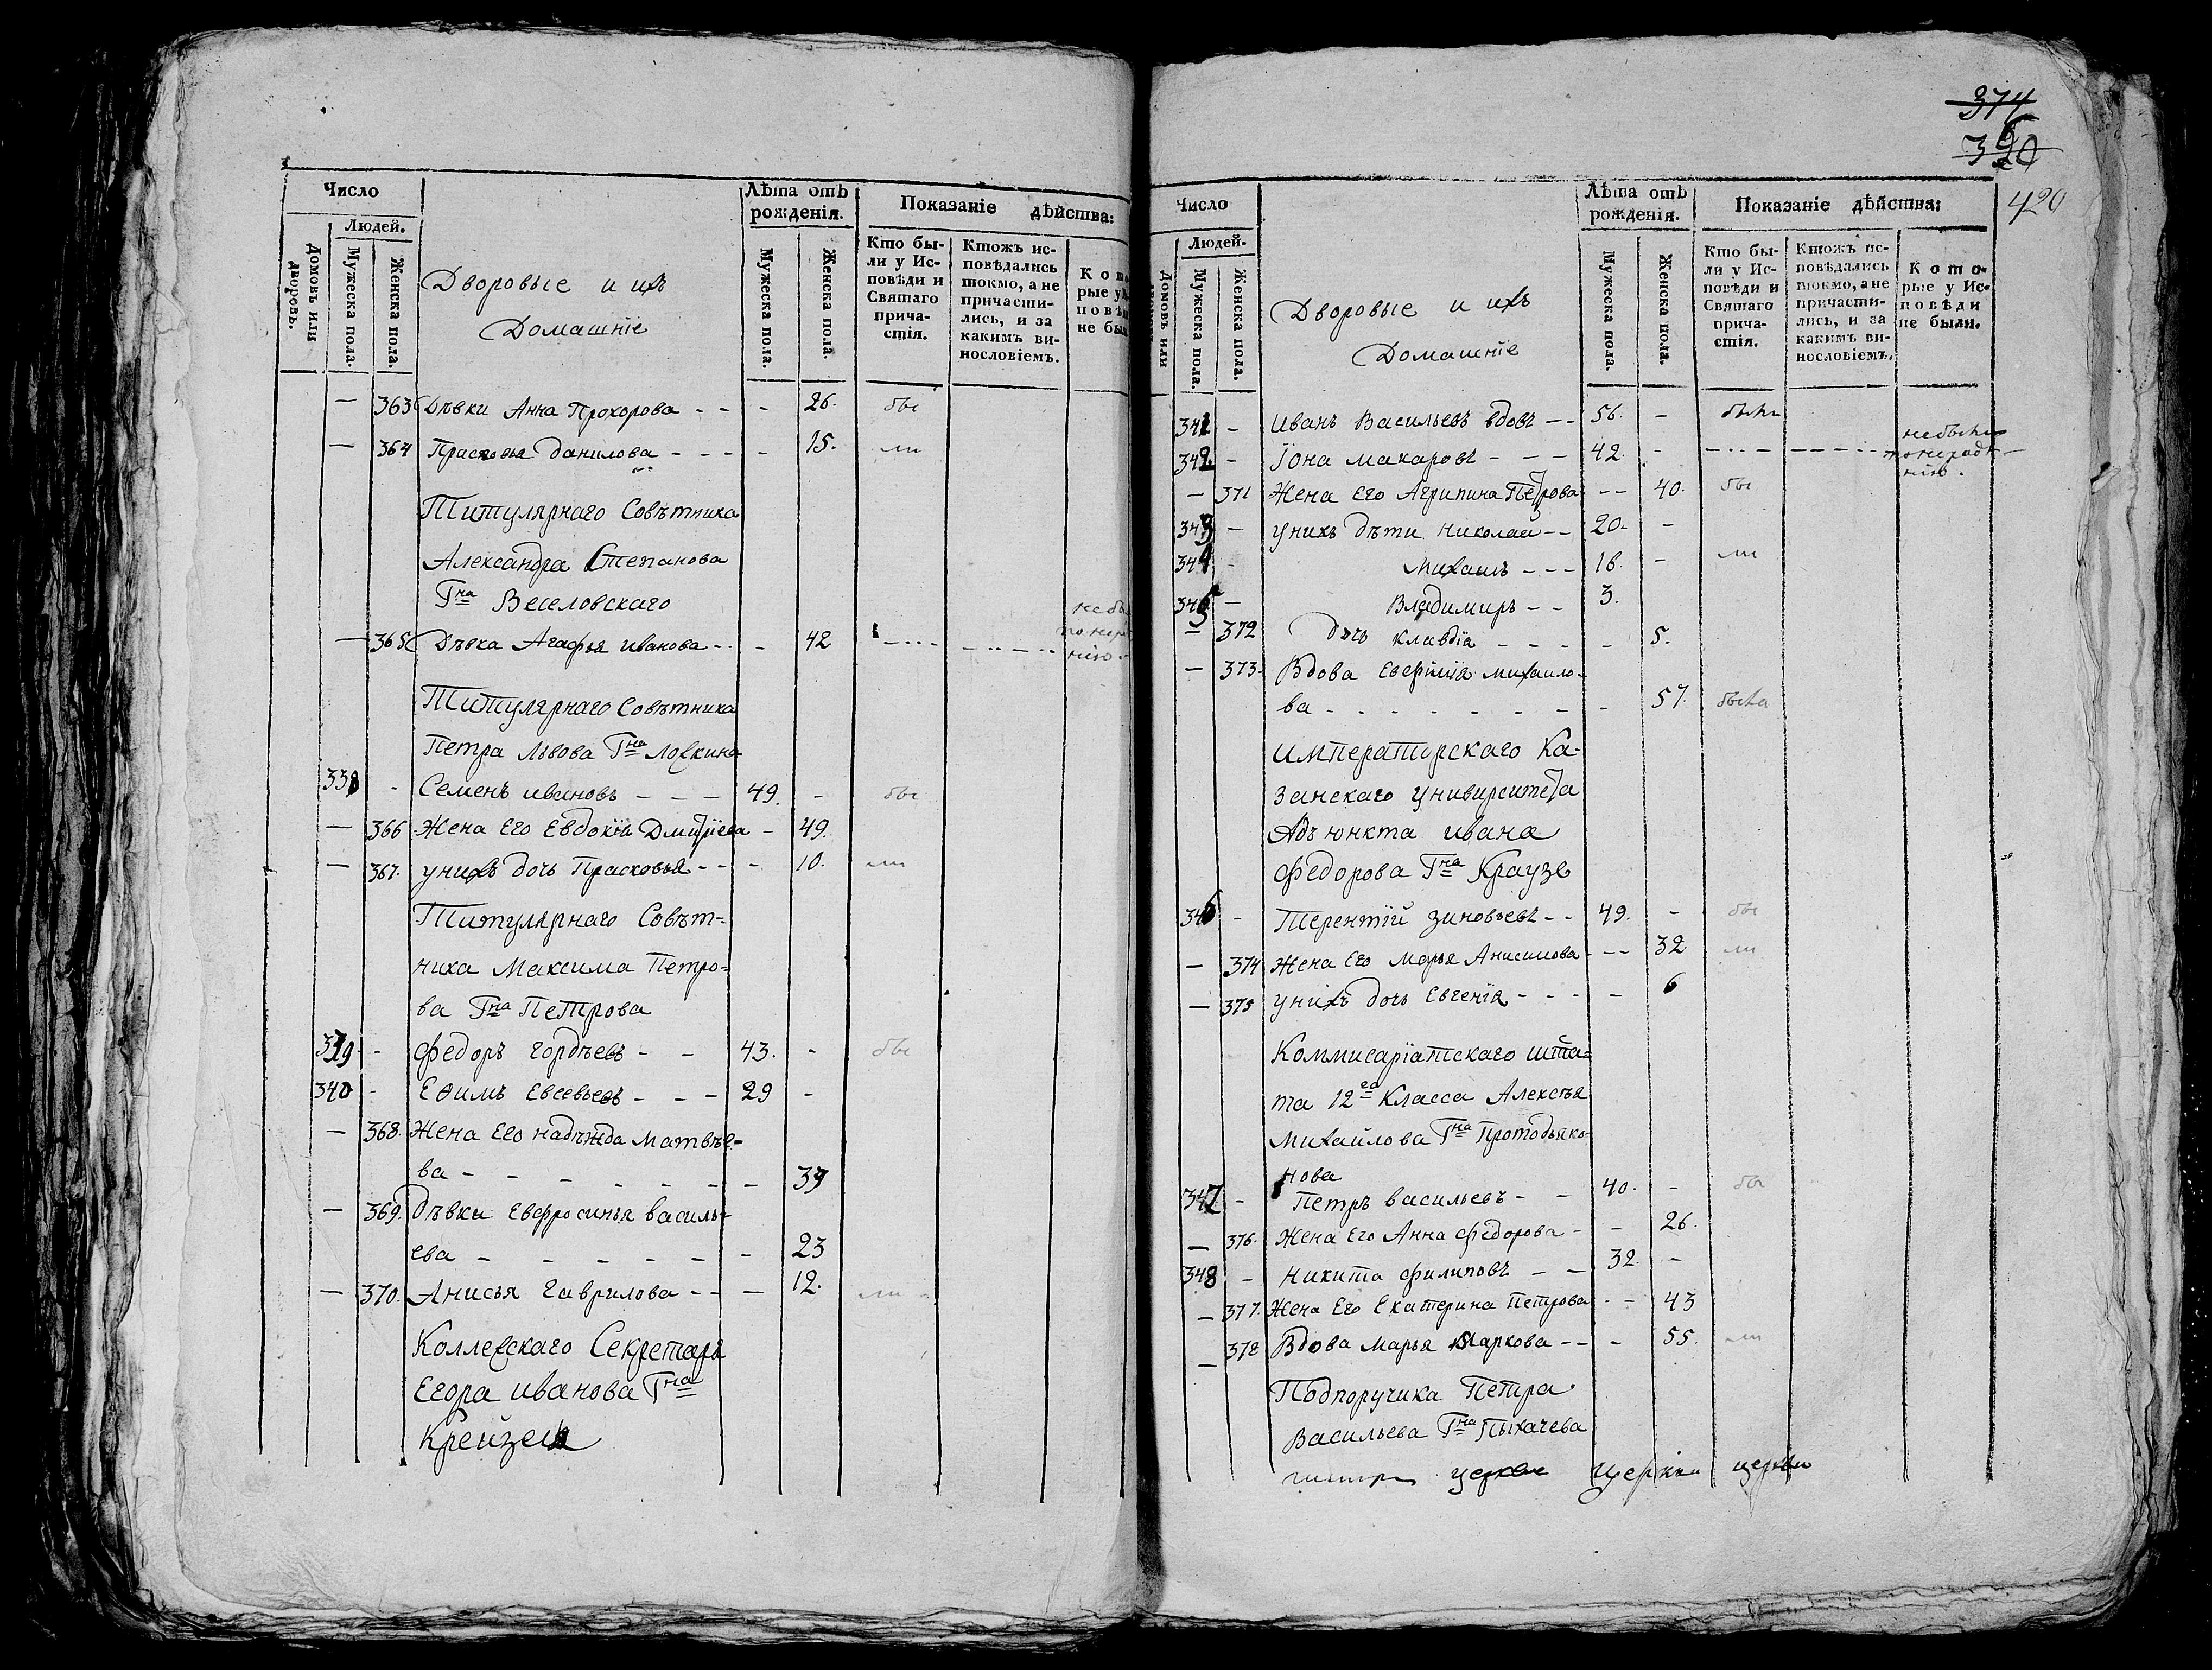 Число
Людей.
Домовъ или дворовъ.
Мужеска пола.
Женска пола.
Дворовые и ихъ
Домашніе
Лѣта отъ
рожденія.
Мужеска пола.
Женска пола.
Показаніе дѣйства:
Кто бы-
ли у Ис-
повѣди и
Святаго
прича-
стія.
Ктожъ ис-
повѣдались
токмо, а не
причасти-
лись, и за
какимъ ви-
нословіемъ.
Кото
рые у И
повѣ
не бы
— 363 Дѣвки Анна Прохорова - - - 26. бы
— 364 Прасковья Данилова - - - - 15. ли
Титулярнаго Совѣтника
Александра Степанова
Гна Веселовскаго
— 365 Дѣвка Агафья Иванова - - - 42 не бы по нера нію
Титулярнаго Совѣтника
Петра Львова Гна
338 - Семенъ Ивановъ - - - 49. - бы
— 366 Жена Его Евдокія Дмитріева - 49.
— 367. у нихъ дочь Прасковья - - - 10. ли
Титулярнаго Совѣт-
ника Максима Петро-
ва Гна Петрова
339 - Федоръ Гордѣевъ - - 43. - бы
340 - Еѳимъ Евсевьевъ - - - 29 -
— 368. Жена Его Надѣжда Матвѣе-
ва - - - - - - - 39
— 369. Дѣвки Евфросинья Василь-
ева - - - - - - - 23
— 370. Анисья Гаврилова - - - 12. ли
Коллежскаго Секретаря
Егора Иванова Гна
Крейзеля
374
420
Число
Людей.
Домовъ или
Мужеска пола.
Женска пола.
Дворовые и ихъ
Домашніе
Лѣта отъ
рожденія.
Мужеска пола.
Женска пола.
Показаніе дѣйства:
Кто бы-
ли у Ис-
повѣди и
Святаго
прича-
стія.
Ктожъ ис-
повѣдались
токмо, а не
причасти-
лись, и за
какимъ ви-
нословіемъ.
Кото-
рые у Ис-
повѣди
не были.
341 - Иванъ Васильевъ вдовъ - - 56. - былъ
342 - Іона Макаровъ - - - 42. - не былъ по нерадѣ нію.
— 371 Жена Его Агрипина Петрова - - 40. бы
343 - у нихъ дѣти Николай - - 20. -
344 - Михаилъ - - - 16. - ли
345 - Владимиръ - - 3.
— 372 дочь Клавдіа - - - - 5.
— 373. Вдова Евфимія Михайло-
ва - - - - - - - - 57. была
Императорскаго Ка-
занскаго Университета
Адъюнкта Ивана
Федорова Гна Краузе
346 - Терентій Зиновьевъ - - 49. - бы
— 374 Жена Его Марья Анисимова - - 32 ли
— 375 у нихъ дочь Евгенія - - - - 6
Коммисаріатскаго шта-
та 12го Класса Алексѣя
Михайлова Гна Протодьяко-
нова
347 - Петръ Васильевъ - - 40. - бы
— 376. Жена Его Анна Федорова - - 26.
348 - Никита Филиповъ - - 32. -
— 377. Жена Его Екатерина Петрова - - 43
— 378 Вдова Марья Маркова - - - 55. ли
Подпоручика Петра
Васильева Гна Пыхачева
церкве Церкви церкви